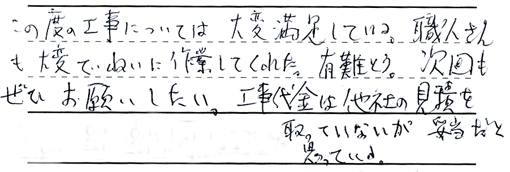 この度の工事については 大変満足している。職人さん
も大変ていねいに作業してくれた。有難とう。次回も
ぜひお願いしたい。工事代金は他社の見積を
取っていないが 妥当だと
思っている。